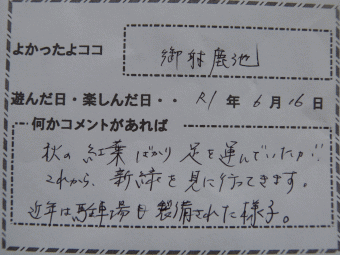 よかったよココ
御射鹿池
遊んだ日・楽しんだ日・・ R1 年 6 月 16 日
何かコメントがあれば
秋の紅葉ばかり足を運んでいたが!!
これから、新緑を見に行ってきます。
近年は駐車場も整備された様子。